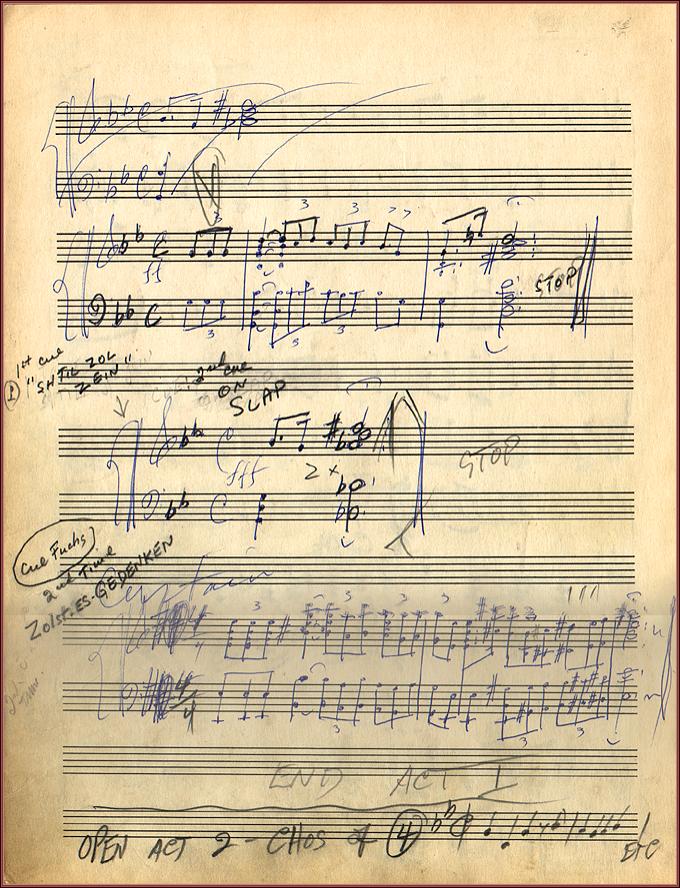 3
3 3 > >
ff
3 3 3
STOP
1st cue
① "SHTIL ZOL
ZEIN"
2nd cue
ON
SLAP
fff
2 x
STOP
Cue Fuchs
2nd Time
ZOLST-ES-GEDENKEN
Curtain
3 3 3 3
4
4
3 3 3
END ACT I
OPEN ACT 2 - CHOS of ④
ETC